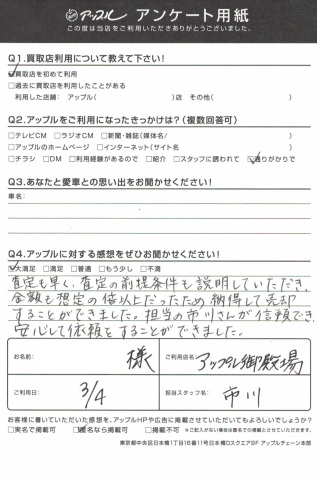 アップル アンケート用紙
この度は当店をご利用いただきありがとうございました。
Q1.買取店利用について教えて下さい!
☑買取店を初めて利用
□過去に買取店を利用したことがある
利用した店舗: アップル( )店 その他( )
Q2.アップルをご利用になったきっかけは?(複数回答可)
□テレビCM □ラジオCM □新聞・雑誌(媒体名/ )
□アップルのホームページ □インターネット(サイト名 )
□チラシ □DM □利用経験があるので □紹介 □スタッフに誘われて ☑通りがかりで
Q3.あなたと愛車との思い出をお聞かせください!
車名:
Q4.アップルに対する感想をぜひお聞かせください!
☑大満足 □満足 □普通 □もう少し □不満
査定も早く、査定の前提条件も説明していただき、
金額も想定の倍以上だったため納得して売却
することができました。担当の市川さんが信頼でき、
安心して依頼をすることができました。
お名前: 様 ご利用店名: アップル御殿場
ご利用日: 3/4 担当スタッフ名: 市川
お客様に書いていただいた感想を、アップルHPや広告に掲載させていただいてもよろしいでしょうか?
□実名で掲載可 ☑匿名なら掲載可 □掲載不可 ※ご記入がない場合は匿名での掲載とさせていただきます。
東京都中央区日本橋1丁目16番11号日本橋Dスクエア9F アップルチェーン本部